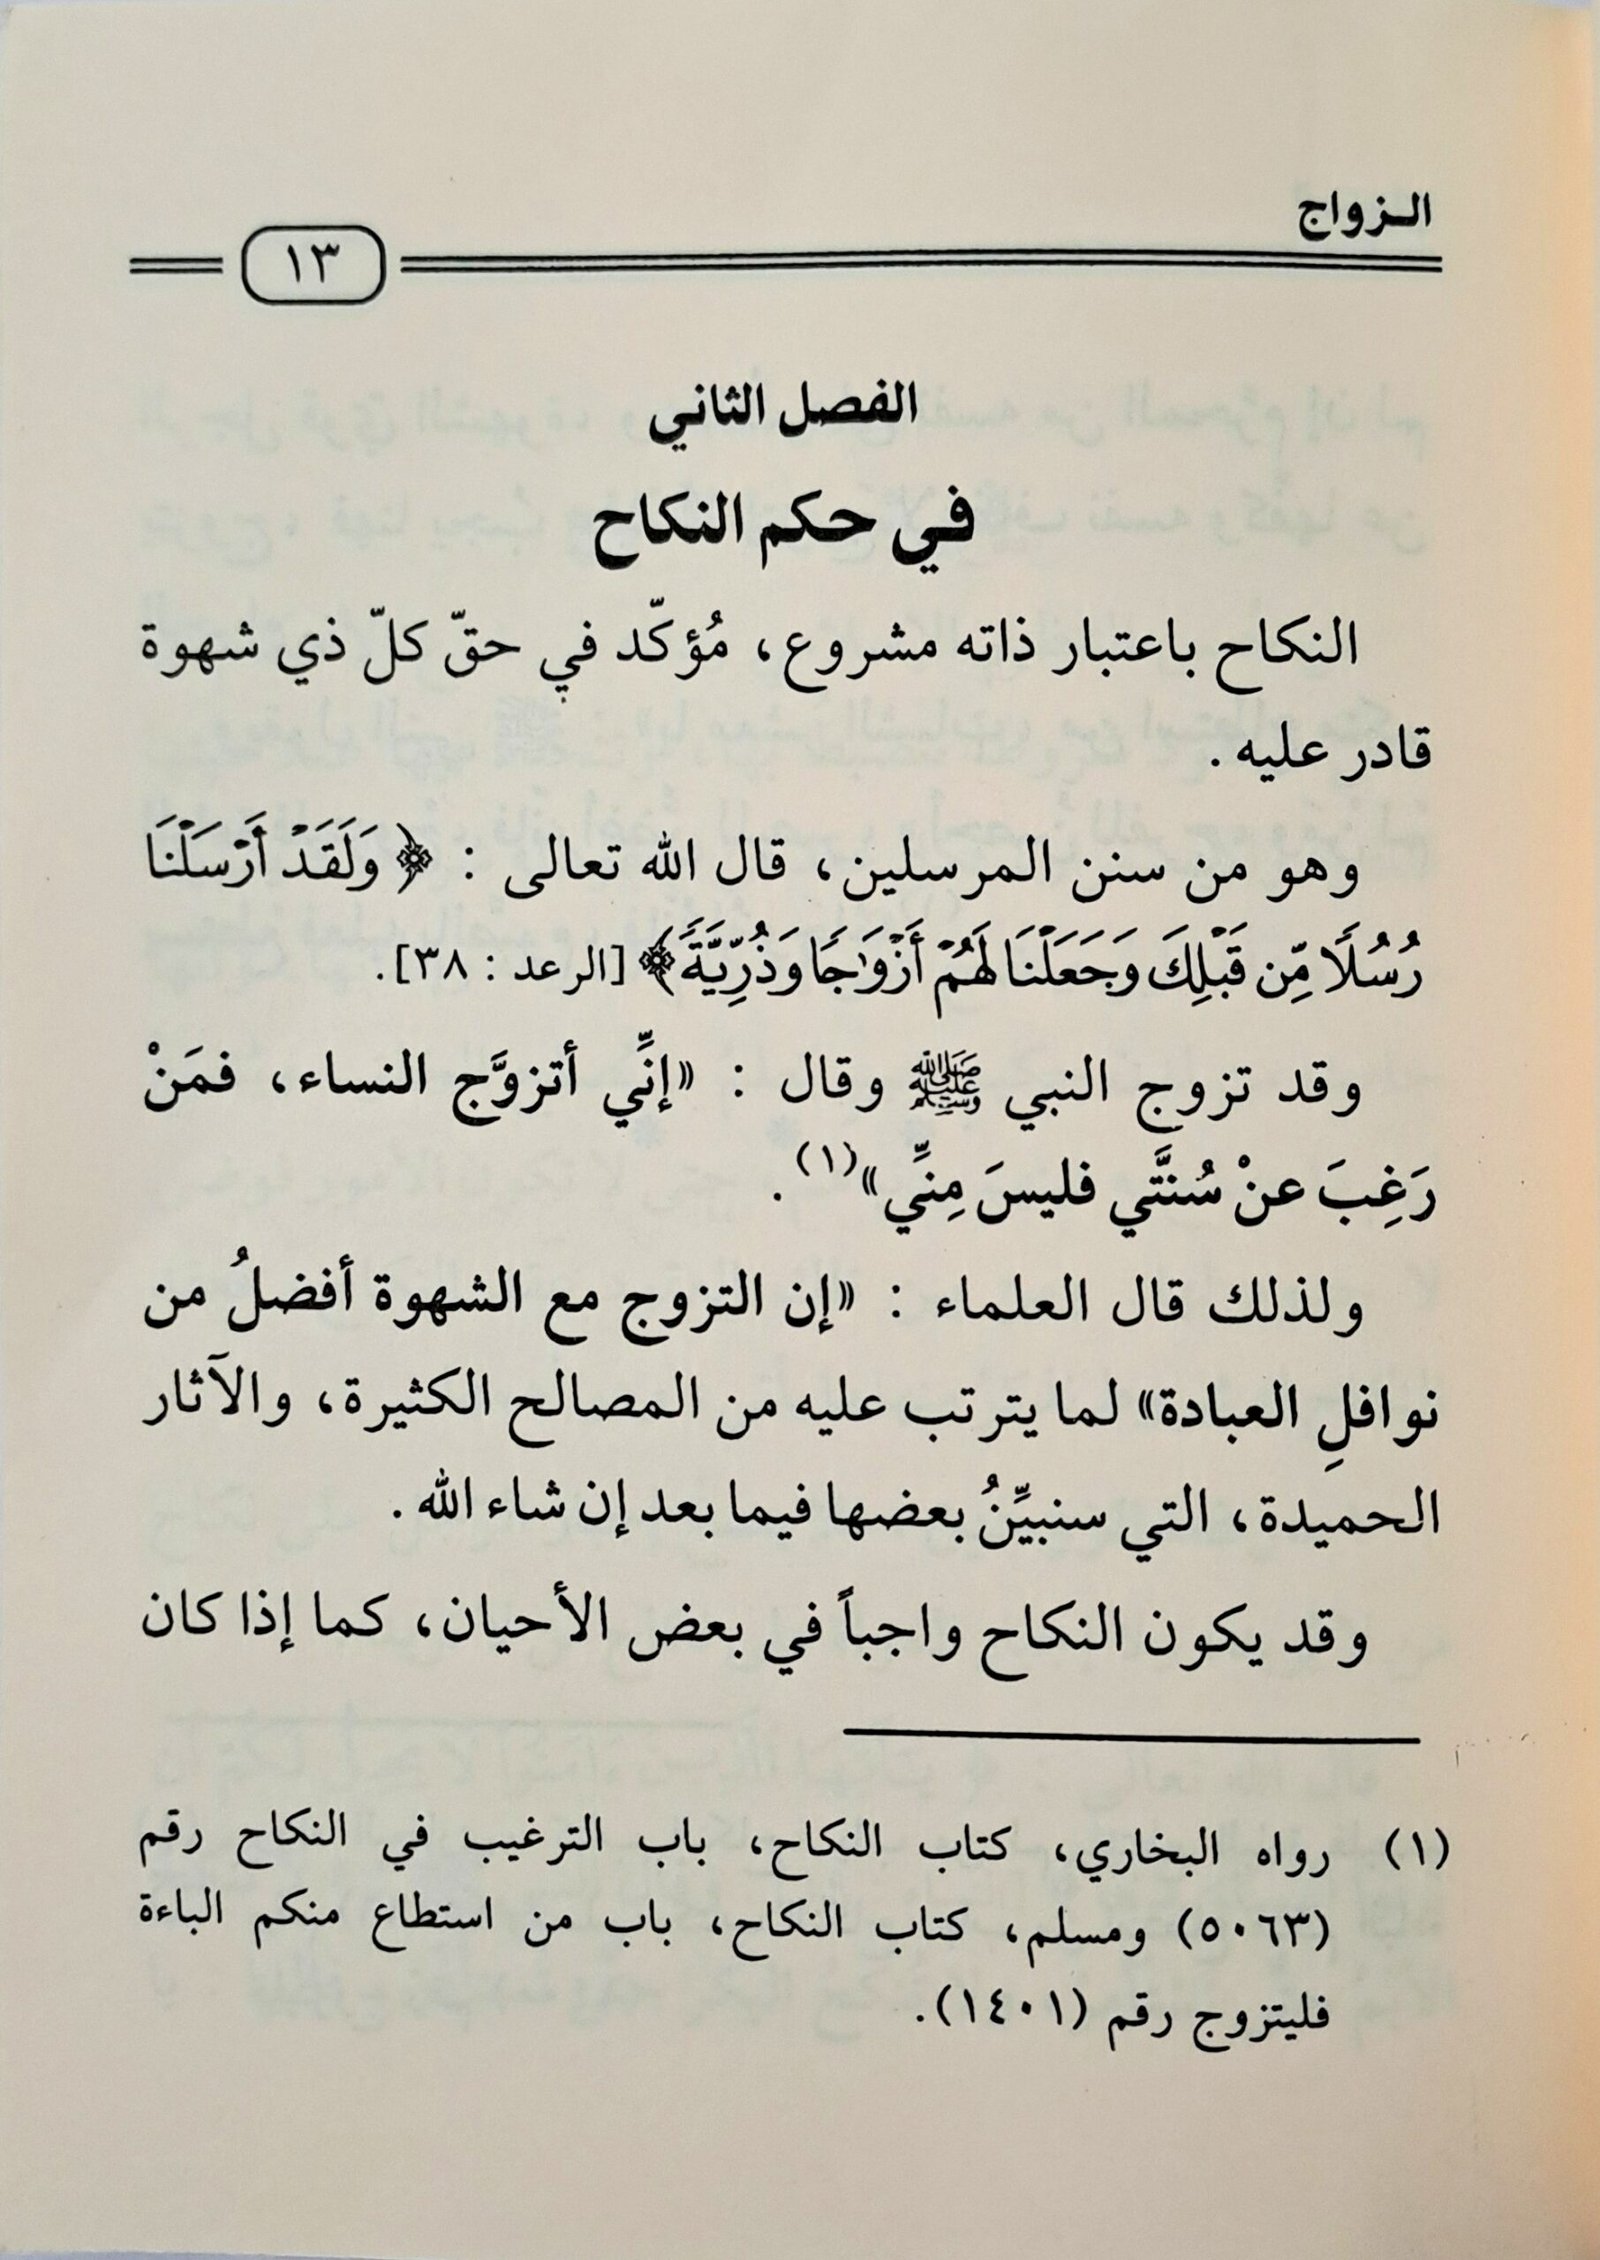 الـزواج
١٣
الفصل الثاني
في حكم النكاح
النكاح باعتبار ذاته مشروع، مُؤكّد في حقّ كلّ ذي شهوة
قادر عليه .
وهو من سنن المرسلين، قال الله تعالى : ﴿ وَلَقَدْ أَرْسَلْنَا
رُسُلًا مِّن قَبْلِكَ وَجَعَلْنَا لَهُمْ أَزْوَٰجًا وَذُرِّيَّةً﴾ [الرعد : ٣٨].
وقد تزوج النبي ﷺ وقال : «إنِّي أتزوَّج النساء، فمَنْ
رَغِبَ عنْ سُنتَّي فليسَ مِنِّي»(١) .
ولذلك قال العلماء : «إن التزوج مع الشهوة أفضلُ من
نوافلِ العبادة» لما يترتب عليه من المصالح الكثيرة، والآثار
الحميدة، التي سنبيِّنُ بعضها فيما بعد إن شاء الله .
وقد يكون النكاح واجباً في بعض الأحيان، كما إذا كان
(١) رواه البخاري، كتاب النكاح، باب الترغيب في النكاح رقم
(٥٠٦٣) ومسلم، كتاب النكاح، باب من استطاع منكم الباءة
فليتزوج رقم (١٤٠١).